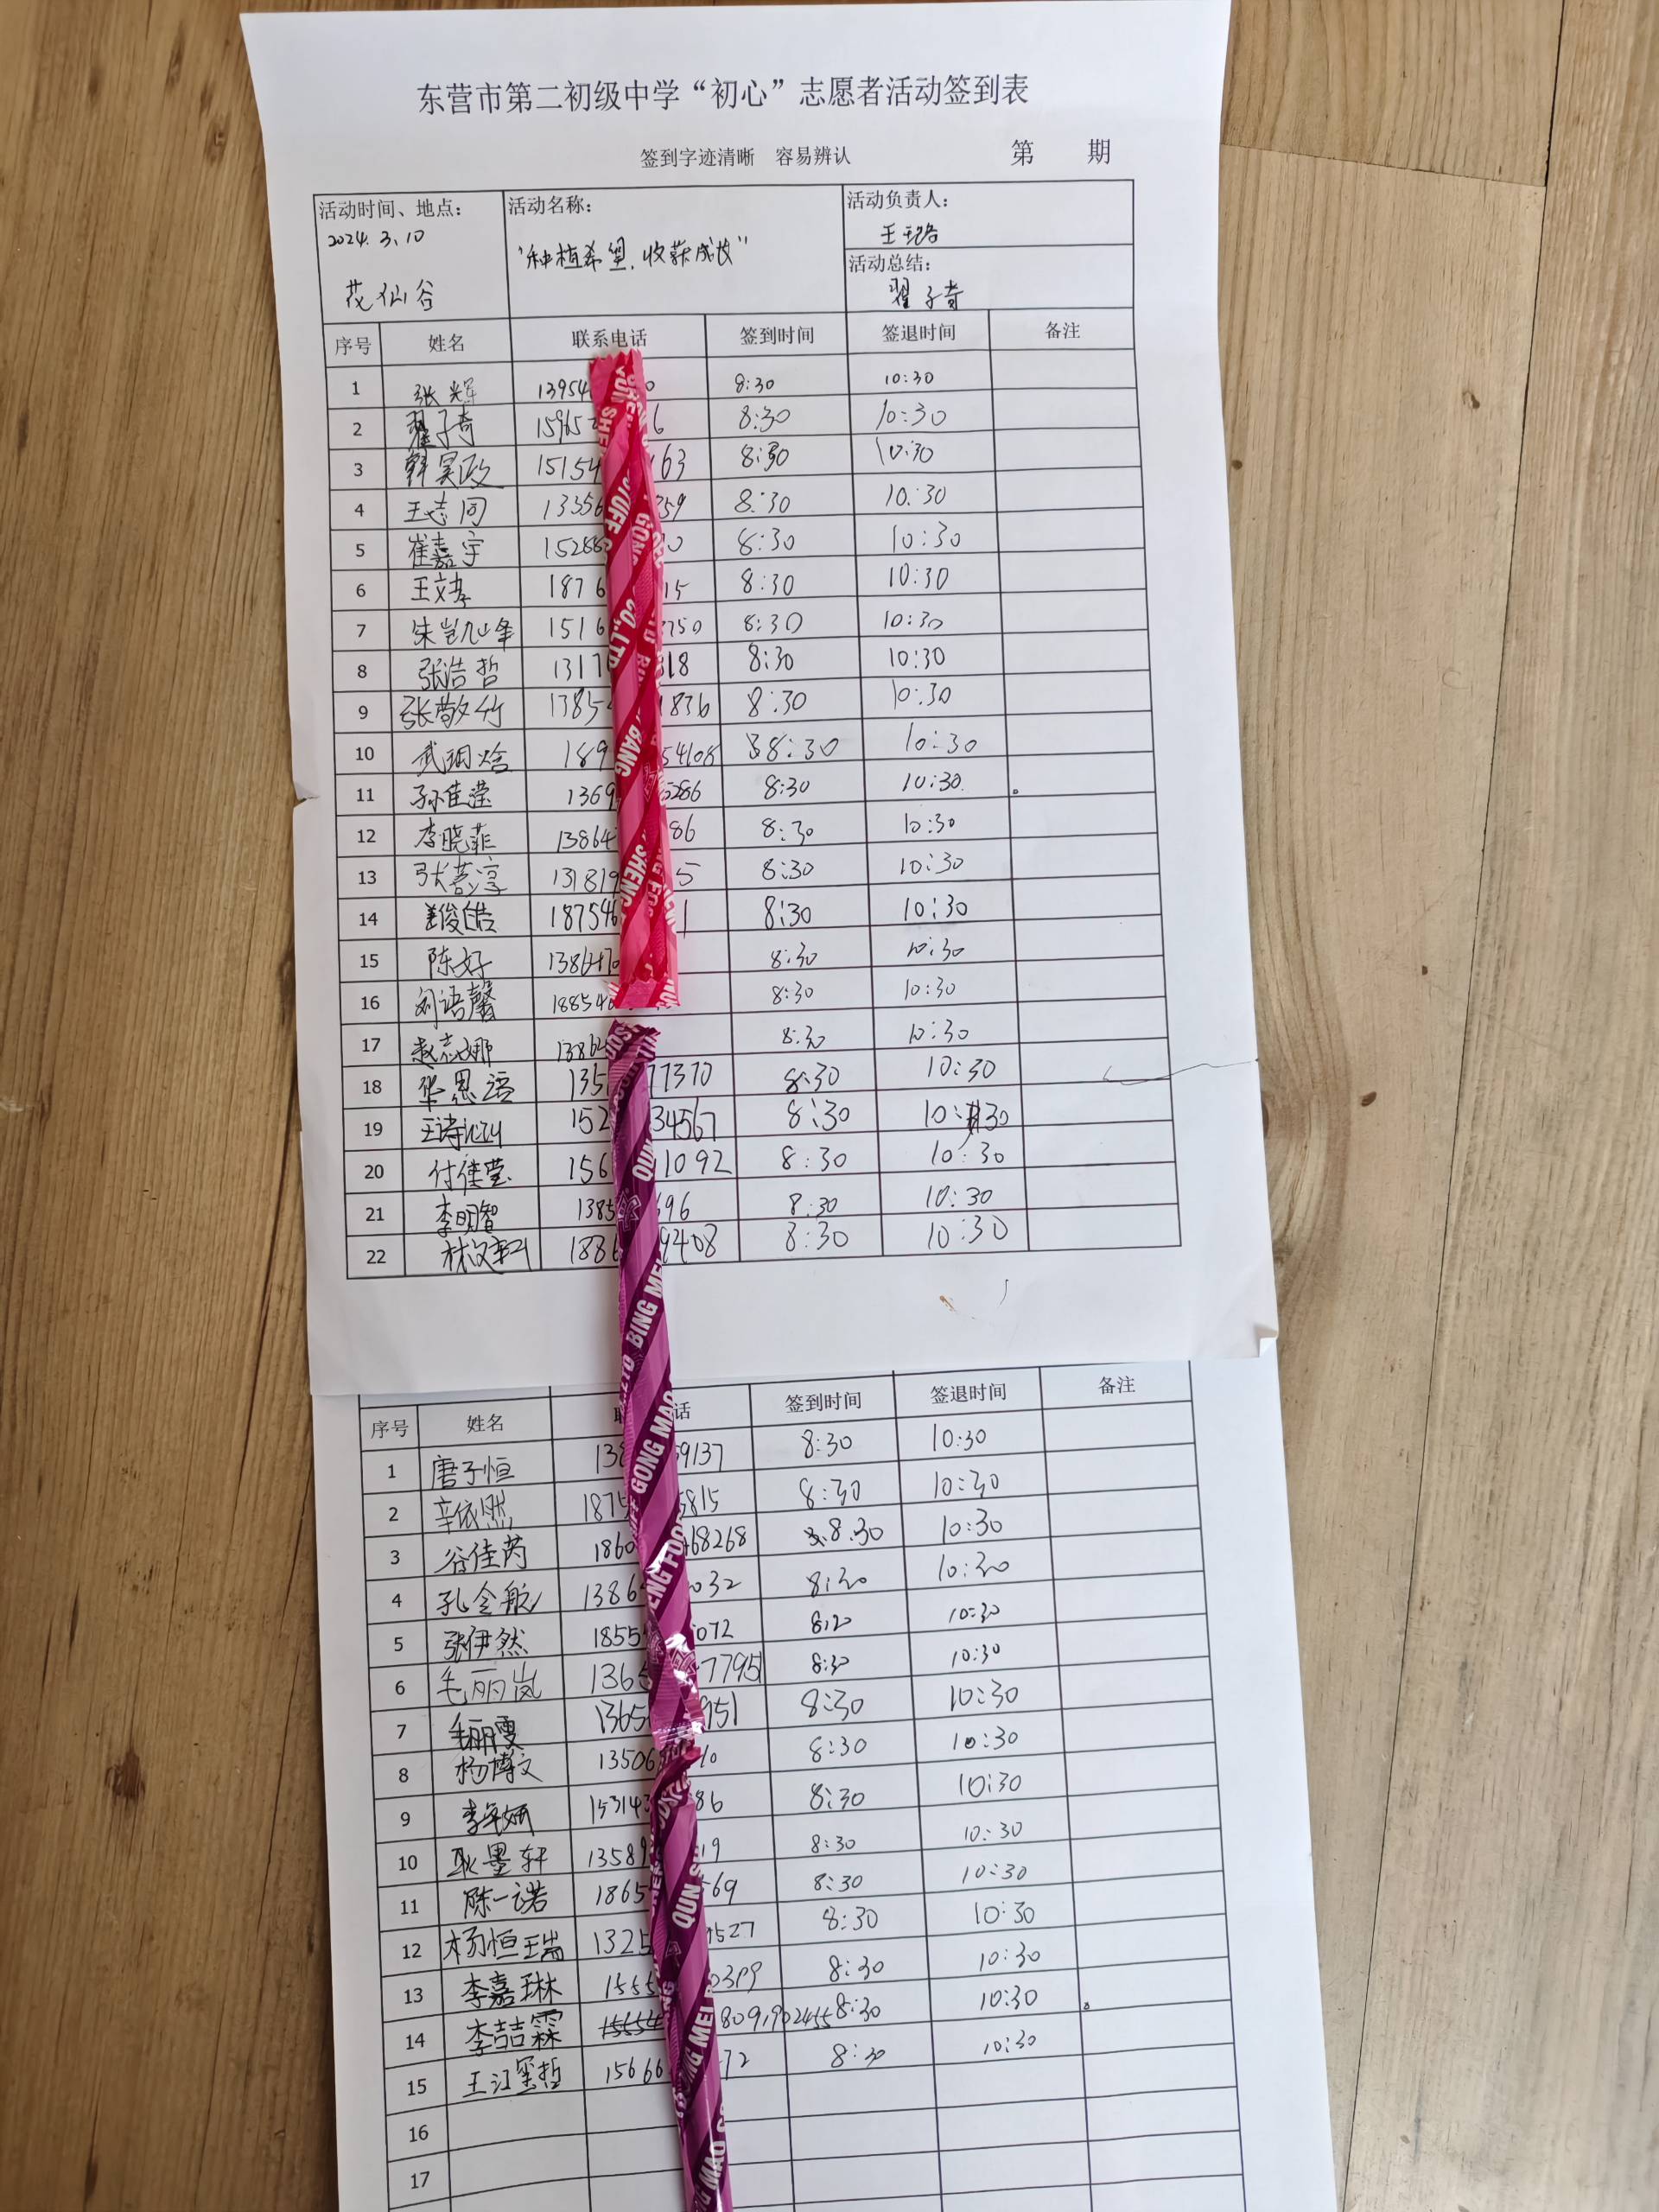 东营市第二初级中学“初心”志愿者活动签到表
签到字迹清晰 容易辨认 第 期
活动时间、地点: 活动名称: 活动负责人:
2024.3.10 "种植希望,收获成长" 王珞
花仙谷 活动总结: 翟子奇
序号 姓名 联系电话 签到时间 签退时间 备注
1 张辉 13954 0 8:30 10:30
2 翟子奇 15965 6 8:30 10:30
3 韩昊政 15154 163 8:30 10:30
4 王志同 13356 359 8:30 10:30
5 崔嘉宇 15288 0 8:30 10:30
6 王文孝 1876 15 8:30 10:30
7 朱岂屹峰 1516 750 8:30 10:30
8 张浩哲 1317 818 8:30 10:30
9 张敬竹 1385 1836 8:30 10:30
10 武珈焓 189 54108 8:30 10:30
11 孙佳滢 1369 5286 8:30 10:30
12 李晓菲 13864 86 8:30 10:30
13 张蕓淳 131819 5 8:30 10:30
14 姜俊皓 187546 1 8:30 10:30
15 陈好 1386470 8:30 10:30
16 刘语馨 188546 8:30 10:30
17 赵志娜 13864 8:30 10:30
18 华恩语 135 77370 8:30 10:30
19 王诗 152 34567 8:30 10:30
20 付佳莹 156 11092 8:30 10:30
21 李明智 1385 696 8:30 10:30
22 林汶 188 9408 8:30 10:30
序号 姓名 联 话 签到时间 签退时间 备注
1 唐子恒 138 59137 8:30 10:30
2 辛依然 1875 5815 8:30 10:30
3 谷佳芮 1860 468268 8.30 10:30
4 孔令航 1386 032 8:30 10:30
5 张伊然 1855 072 8:30 10:30
6 毛丽岚 1365 77951 8:30 10:30
7 毛丽雯 1365 951 8:30 10:30
8 杨博文 13506 10 8:30 10:30
9 李 妍 153143 86 8:30 10:30
10 耿墨轩 13589 19 8:30 10:30
11 陈一诺 1865 569 8:30 10:30
12 杨恒瑞 1325 527 8:30 10:30
13 李嘉琳 1555 0399 8:30 10:30
14 李喆霖 15554 8091902455 8:30 10:30
15 王江宸哲 15666 72 8:30 10:30
16
17
GONG MAO
BING MEI
QUN SHENG
CO.,LTD
BANG